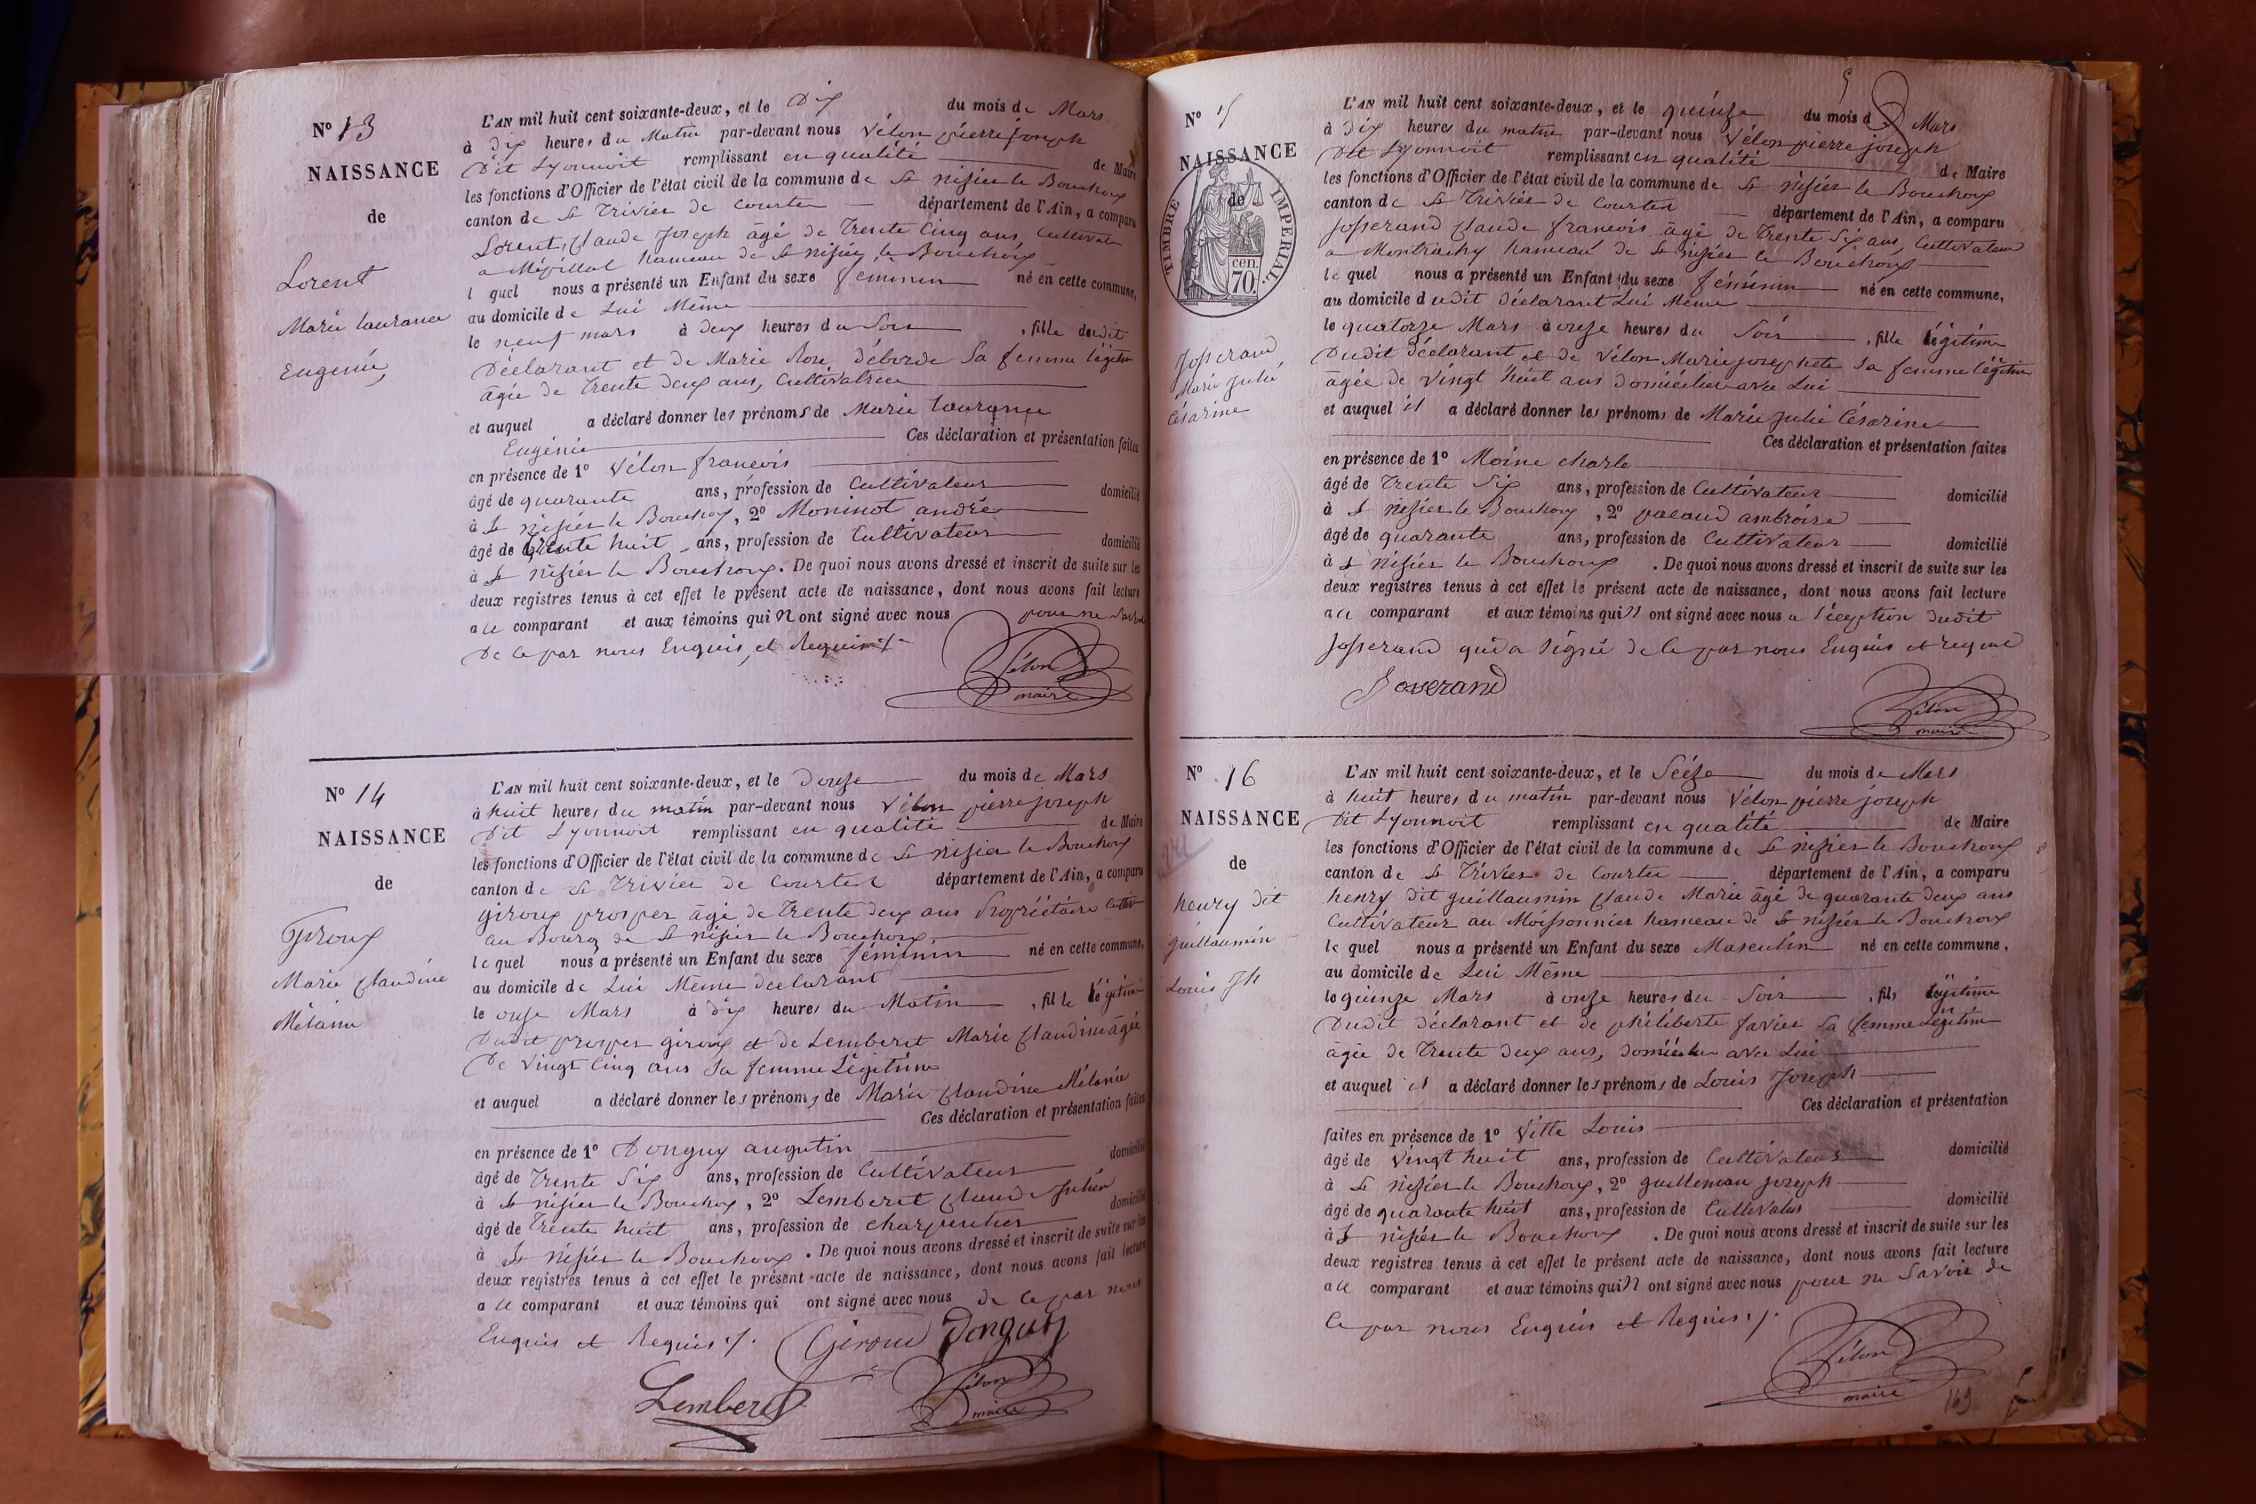 N° 13
NAISSANCE
de
Lorent
Marie laurance
Eugénie
L'AN mil huit cent soixante-deux, et le Dix du mois de Mars
à Dix heures du Matin par-devant nous Vélon pierre joseph
Dit Lyonnoit remplissant en qualité de Maire
les fonctions d'Officier de l'état civil de la commune de St nisier le Bouchoux
canton de St Trivier de Courtes département de l'Ain, a comparu
Lorent Claude Joseph âgé de Trente Cinq ans, Cultivateur
a Mépillat hameau de St nisier le Bouchoux
l quel nous a présenté un Enfant du sexe féminin né en cette commune,
au domicile de Lui Même
le neuf mars à deux heures du Soir , fille dudit
Déclarant et de Marie Rose Déborde Sa femme légitime
âgée de Trente deux ans, Cultivatrice
et auquel a déclaré donner les prénoms de Marie laurance
Eugénie Ces déclaration et présentation faites
en présence de 1° Vélon francois
âgé de quarante ans, profession de Cultivateur domicilié
à St nisier le Bouchoux, 2° Moninot andré
âgé de Trente huit ans, profession de Cultivateur domicilié
à St nisier le Bouchoux. De quoi nous avons dressé et inscrit de suite sur les
deux registres tenus à cet effet le présent acte de naissance, dont nous avons fait lecture
au comparant et aux témoins qui N ont signé avec nous pour ne Savoir
De Ce par nous Enquis et Requis
Vélon
maire
N° 14
NAISSANCE
de
Giroux
Marie Claudine
Mélanie
L'AN mil huit cent soixante-deux, et le Douze du mois de Mars
à huit heures du matin par-devant nous Vélon pierre joseph
Dit Lyonnoit remplissant en qualité de Maire
les fonctions d'Officier de l'état civil de la commune de St nisier le Bouchoux
canton de St Trivier de Courtes département de l'Ain, a comparu
giroux prosper âgé de Trente deux ans Propriétaire Cultiv
au Bourg de St nisier le Bouchoux
le quel nous a présenté un Enfant du sexe féminin né en cette commune,
au domicile de Lui Même déclarant
le onze Mars à dix heures du Matin , fille légitime
Dudit prosper giroux et de Lemberet Marie Claudine âgée
De Vingt Cinq ans Sa femme Légitime
et auquel a déclaré donner les prénoms de Marie Claudine Mélanie
Ces déclaration et présentation faites
en présence de 1° Donguy augutin
âgé de Trente Six ans, profession de Cultivateur domicilié
à St nisier le Bouchoux, 2° Lemberet Claude Julien
âgé de Trente huit ans, profession de charpentier domicilié
à St nisier le Bouchoux. De quoi nous avons dressé et inscrit de suite sur les
deux registres tenus à cet effet le présent acte de naissance, dont nous avons fait lecture
au comparant et aux témoins qui ont signé avec nous de Ce par nous
Enquis et Requis
Giroux Donguy
Lemberet
Vélon
maire
N° 15
NAISSANCE
de
TIMBRE IMPERIAL
70 cen.
Josserand
Marie Julie
Césarine
L'AN mil huit cent soixante-deux, et le quinze du mois de Mars
à Dix heures du matin par-devant nous Vélon pierre joseph
Dit Lyonnoit remplissant en qualité de Maire
les fonctions d'Officier de l'état civil de la commune de St nisier le Bouchoux
canton de St Trivier de Courtes département de l'Ain, a comparu
Josserand Claude francois âgé de Trente Six ans, Cultivateur
a Montrachy hameau de St nisier le Bouchoux
le quel nous a présenté un Enfant du sexe féminin né en cette commune,
au domicile dudit déclarant Lui Même
le quatorze Mars à onze heures du Soir , fille légitime
Dudit déclarant et de Vélon Marie josephete Sa femme légitime
âgée de Vingt huit ans domiciliée avec Lui
et auquel il a déclaré donner les prénoms de Marie Julie Césarine
Ces déclaration et présentation faites
en présence de 1° Moine charle
âgé de Trente Six ans, profession de Cultivateur domicilié
à St nisier le Bouchoux, 2° pacaud ambroise
âgé de quarante ans, profession de Cultivateur domicilié
à St nisier le Bouchoux. De quoi nous avons dressé et inscrit de suite sur les
deux registres tenus à cet effet le présent acte de naissance, dont nous avons fait lecture
au comparant et aux témoins qui N ont signé avec nous a l'éception dudit
Josserand qui a signé de Ce par nous Enquis et requis
Joserand
Vélon
maire
N° 16
NAISSANCE
de
henry dit
guillaumin
Louis Jh
L'AN mil huit cent soixante-deux, et le Séize du mois de Mars
à huit heures du matin par-devant nous Vélon pierre joseph
Dit Lyonnoit remplissant en qualité de Maire
les fonctions d'Officier de l'état civil de la commune de St nisier le Bouchoux
canton de St Trivier de Courtes département de l'Ain, a comparu
henry dit guillaumin Claude Marie âgé de quarante deux ans
Cultivateur au Moissonnier hameau de St nisier le Bouchoux
le quel nous a présenté un Enfant du sexe Masculin né en cette commune,
au domicile de Lui Même
le quinze Mars à onze heures du Soir , fils légitime
Dudit déclarant et de philiberte favier Sa femme Légitime
âgée de Trente deux ans, domiciliée avec Lui
et auquel il a déclaré donner les prénoms de Louis Joseph
Ces déclaration et présentation
faites en présence de 1° Vitte Louis
âgé de Vingt huit ans, profession de Cultivateur domicilié
à St nisier le Bouchoux, 2° guillemau joseph
âgé de quarante huit ans, profession de Cultivateur domicilié
à St nisier le Bouchoux. De quoi nous avons dressé et inscrit de suite sur les
deux registres tenus à cet effet le présent acte de naissance, dont nous avons fait lecture
au comparant et aux témoins qui N ont signé avec nous pour ne Savoir de
Ce par nous Enquis et Requis
Vélon
maire
163